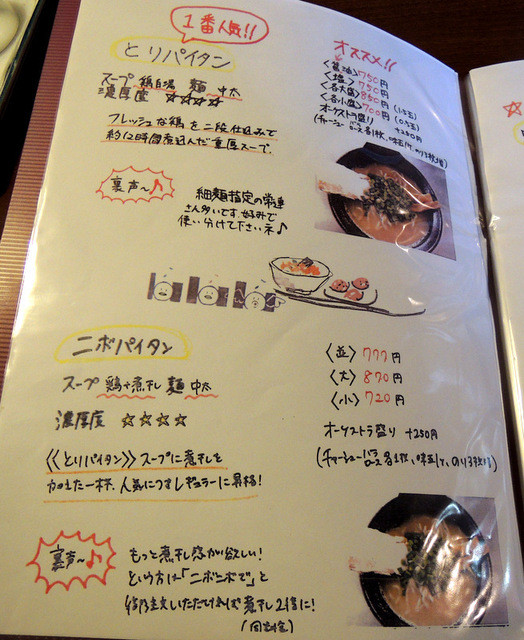 1番人気!!
とりパイタン
スープ 鶏白湯 麺 中太
濃厚度 ☆☆☆☆
フレッシュな鶏を二段仕込みで
約12時間煮込んだ重厚スープ。
オススメ!!
〈醤油〉750円
〈塩〉750円
〈各大盛〉850円 (1.5玉)
〈各小盛〉700円 (0.5玉)
オーケストラ盛り +250円
(チャーシューバラ ロース各1枚、味玉1ヶ、のり3枚増)
裏声～♪
細麺指定の常連
さん多いです。お好みで
使い分けて下さいネ♪
ニボパイタン
スープ 鶏+煮干し 麺 中太
濃厚度 ☆☆☆☆
《とりパイタン》スープに煮干しを
加えた一杯。人気につきレギュラーに昇格!
〈並〉777円
〈大〉870円
〈小〉720円
オーケストラ盛り +250円
(チャーシューバラ ロース各1枚、味玉1ヶ、のり3枚増)
裏声～♪
もっと煮干し感が欲しい!
という方は「ニボニボで」と
御注文いただければ煮干し2倍に!
(同料金)